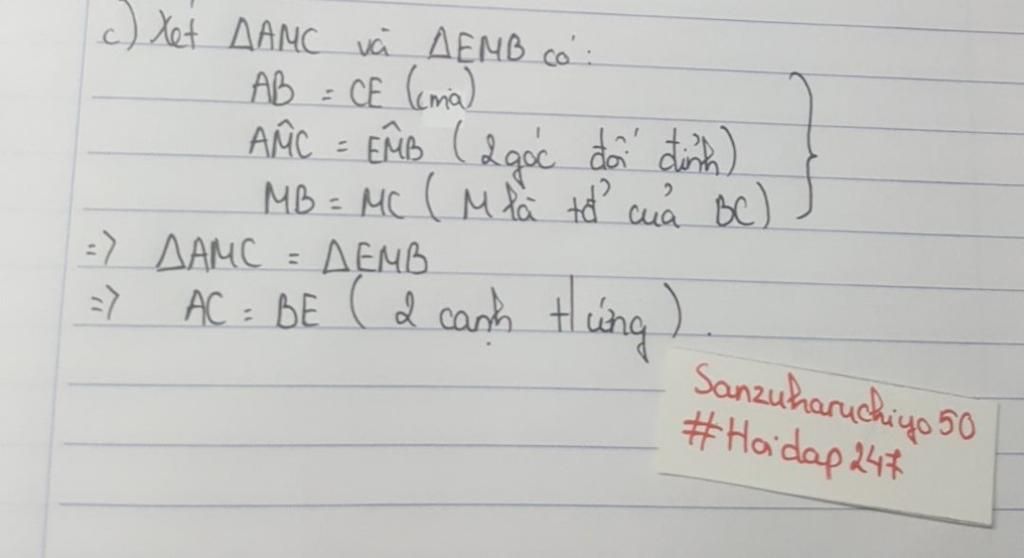 c) Xét ΔAMC và ΔEMB có:
AB = CE (cma)
AM̂C = EM̂B (2 góc đối đỉnh)
MB = MC (M là tđ của BC)
=> ΔAMC = ΔEMB
=> AC = BE (2 cạnh tứ ứng).
Sanzuharuchiyo50
#Hoidap247